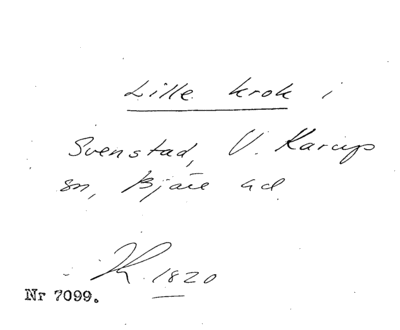 Lille krok i
Svenstad, V. Karup
sn, Bjäre hd
K. 1820
Nr 7099.